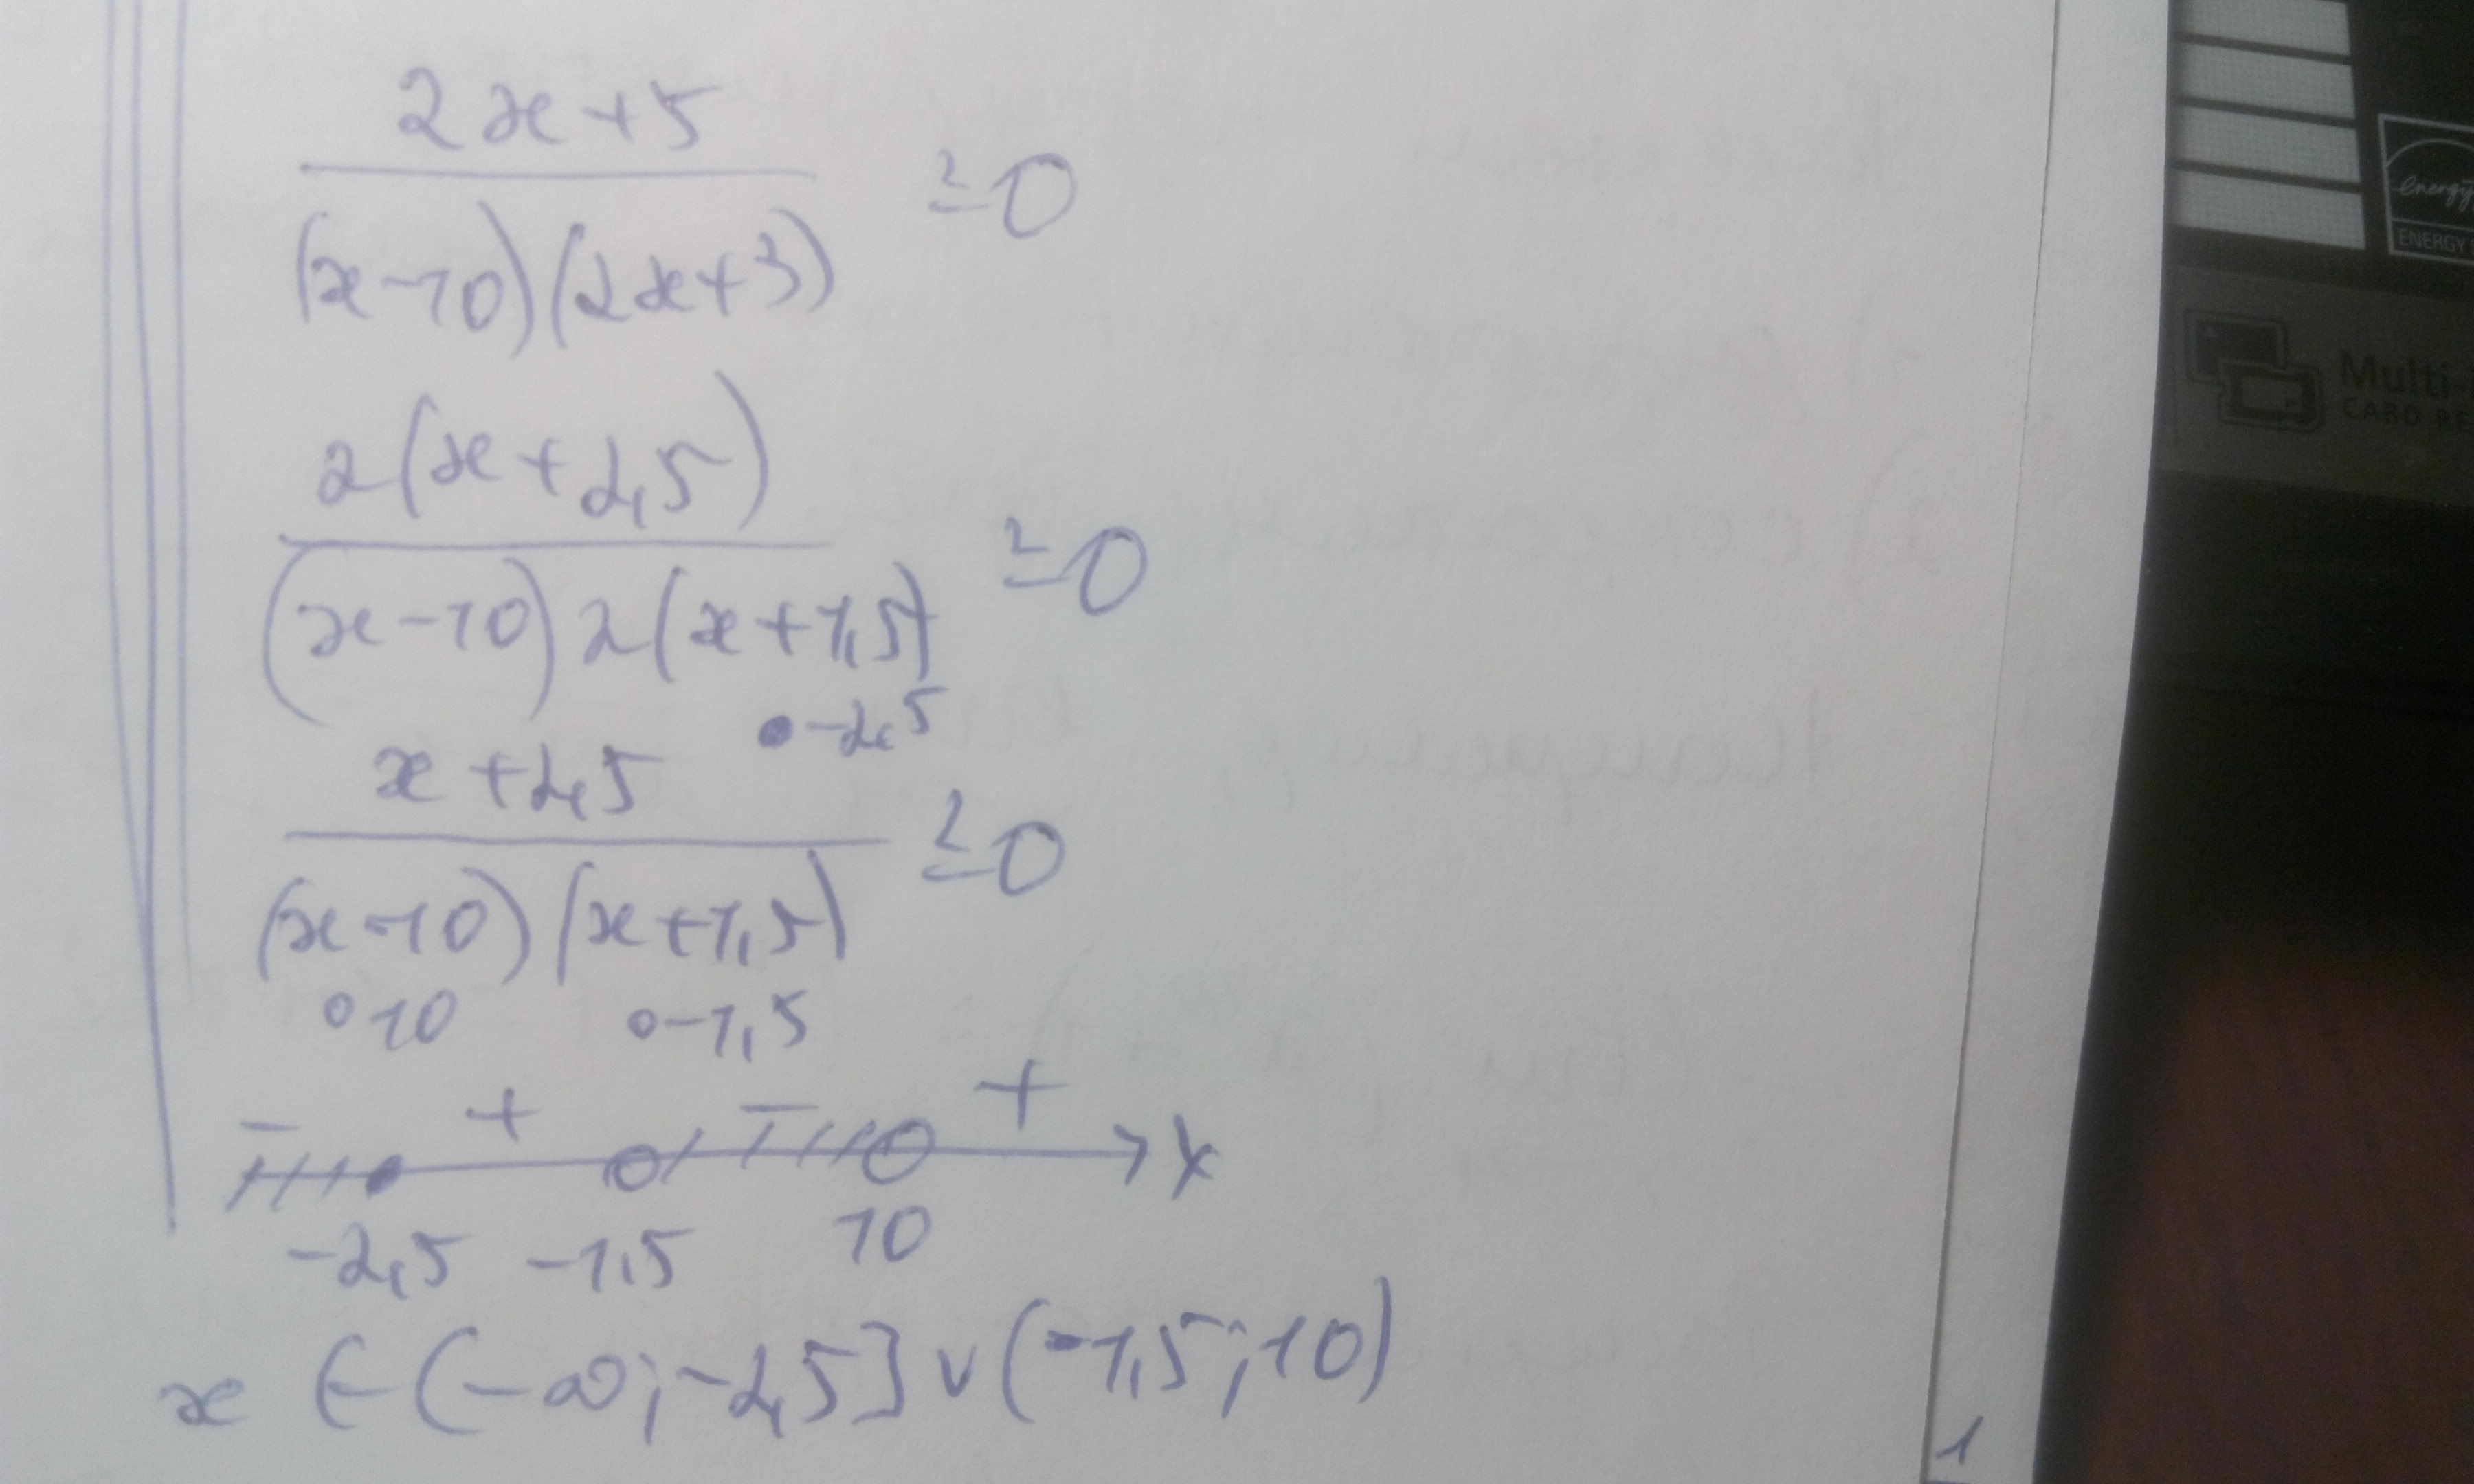 2x+5
(x-10)(2x+3) ≥0
2(x+2,5)
(x-10)2(x+1,5) ≥0
•-2,5
x+2,5
(x-10)(x+1,5) ≥0
∘10 ∘-1,5
- + - + x
-2,5 -1,5 10
x ∈ (-∞;-2,5]∪(-1,5;10)
1
energy
ENERGY
Multi-
CARD RE